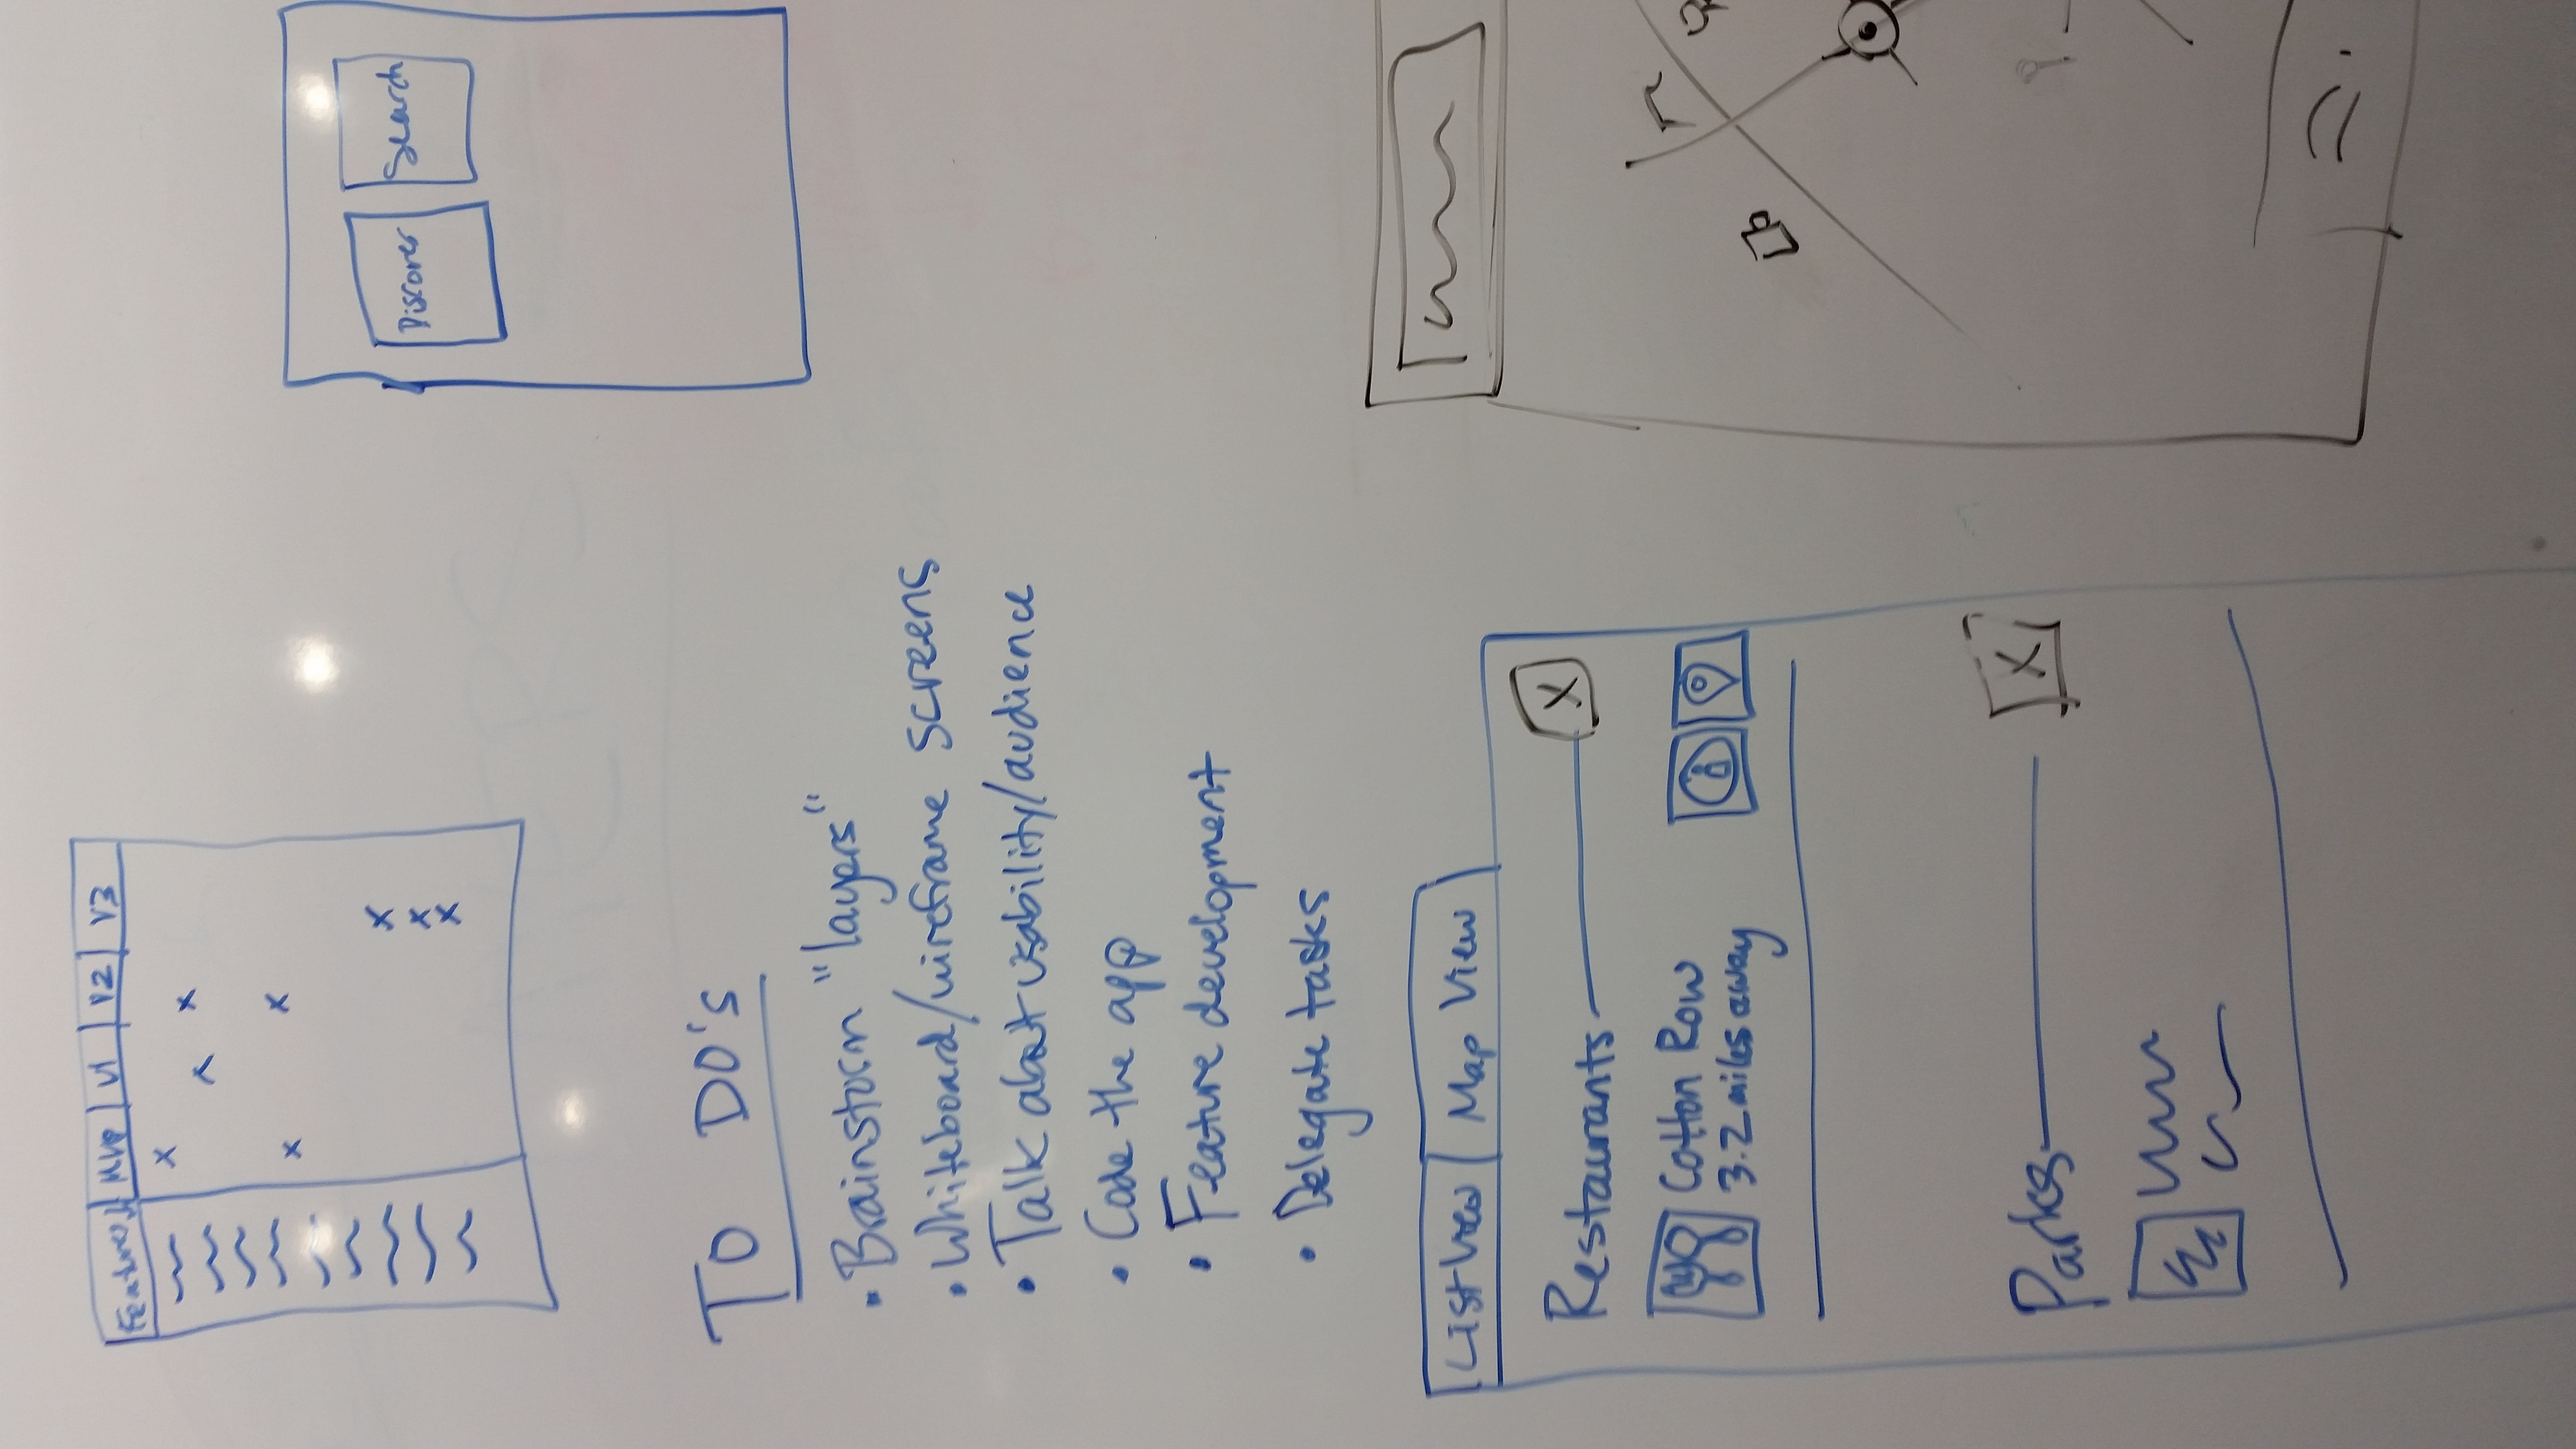 Features MVP V1 V2 V3
x
x
x
x
x
x
x
x
Discover Search
TO DO's
• Brainstorm "layers"
• Whiteboard/wireframe screens
• Talk about usability/audience
• Code the app
• Feature development
• Delegate tasks
List View Map View
Restaurants X
Cotton Row
3.2 miles away
i
Parks X